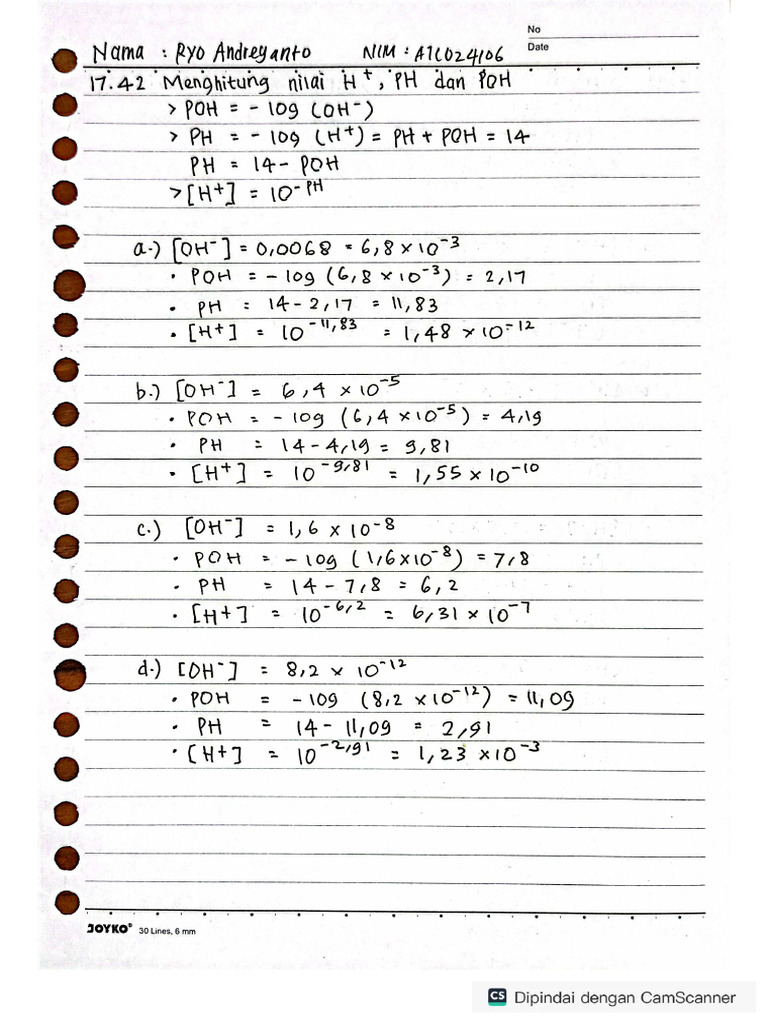 No
Date
Nama : Ryo Andreyanto NIM : A1C024106
17.42 Menghitung nilai H⁺, PH dan POH
> POH = - log (OH⁻)
> PH = - log (H⁺) = PH + POH = 14
PH = 14 - POH
> [H⁺] = 10⁻ᴾᴴ
a.) [OH⁻] = 0,0068 = 6,8 × 10⁻³
• POH = - log (6,8 × 10⁻³) = 2,17
• PH = 14 - 2,17 = 11,83
• [H⁺] = 10⁻¹¹,⁸³ = 1,48 × 10⁻¹²
b.) [OH⁻] = 6,4 × 10⁻⁵
• POH = - log (6,4 × 10⁻⁵) = 4,19
• PH = 14 - 4,19 = 9,81
• [H⁺] = 10⁻⁹,⁸¹ = 1,55 × 10⁻¹⁰
c.) [OH⁻] = 1,6 × 10⁻⁸
• POH = - log (1,6×10⁻⁸) = 7,8
• PH = 14 - 7,8 = 6,2
• [H⁺] = 10⁻⁶,² = 6,31 × 10⁻⁷
d.) [OH⁻] = 8,2 × 10⁻¹²
• POH = - log (8,2 × 10⁻¹²) = 11,09
• PH = 14 - 11,09 = 2,91
• [H⁺] = 10⁻²,⁹¹ = 1,23 × 10⁻³
JOYKO® 30 Lines, 6 mm
CS Dipindai dengan CamScanner